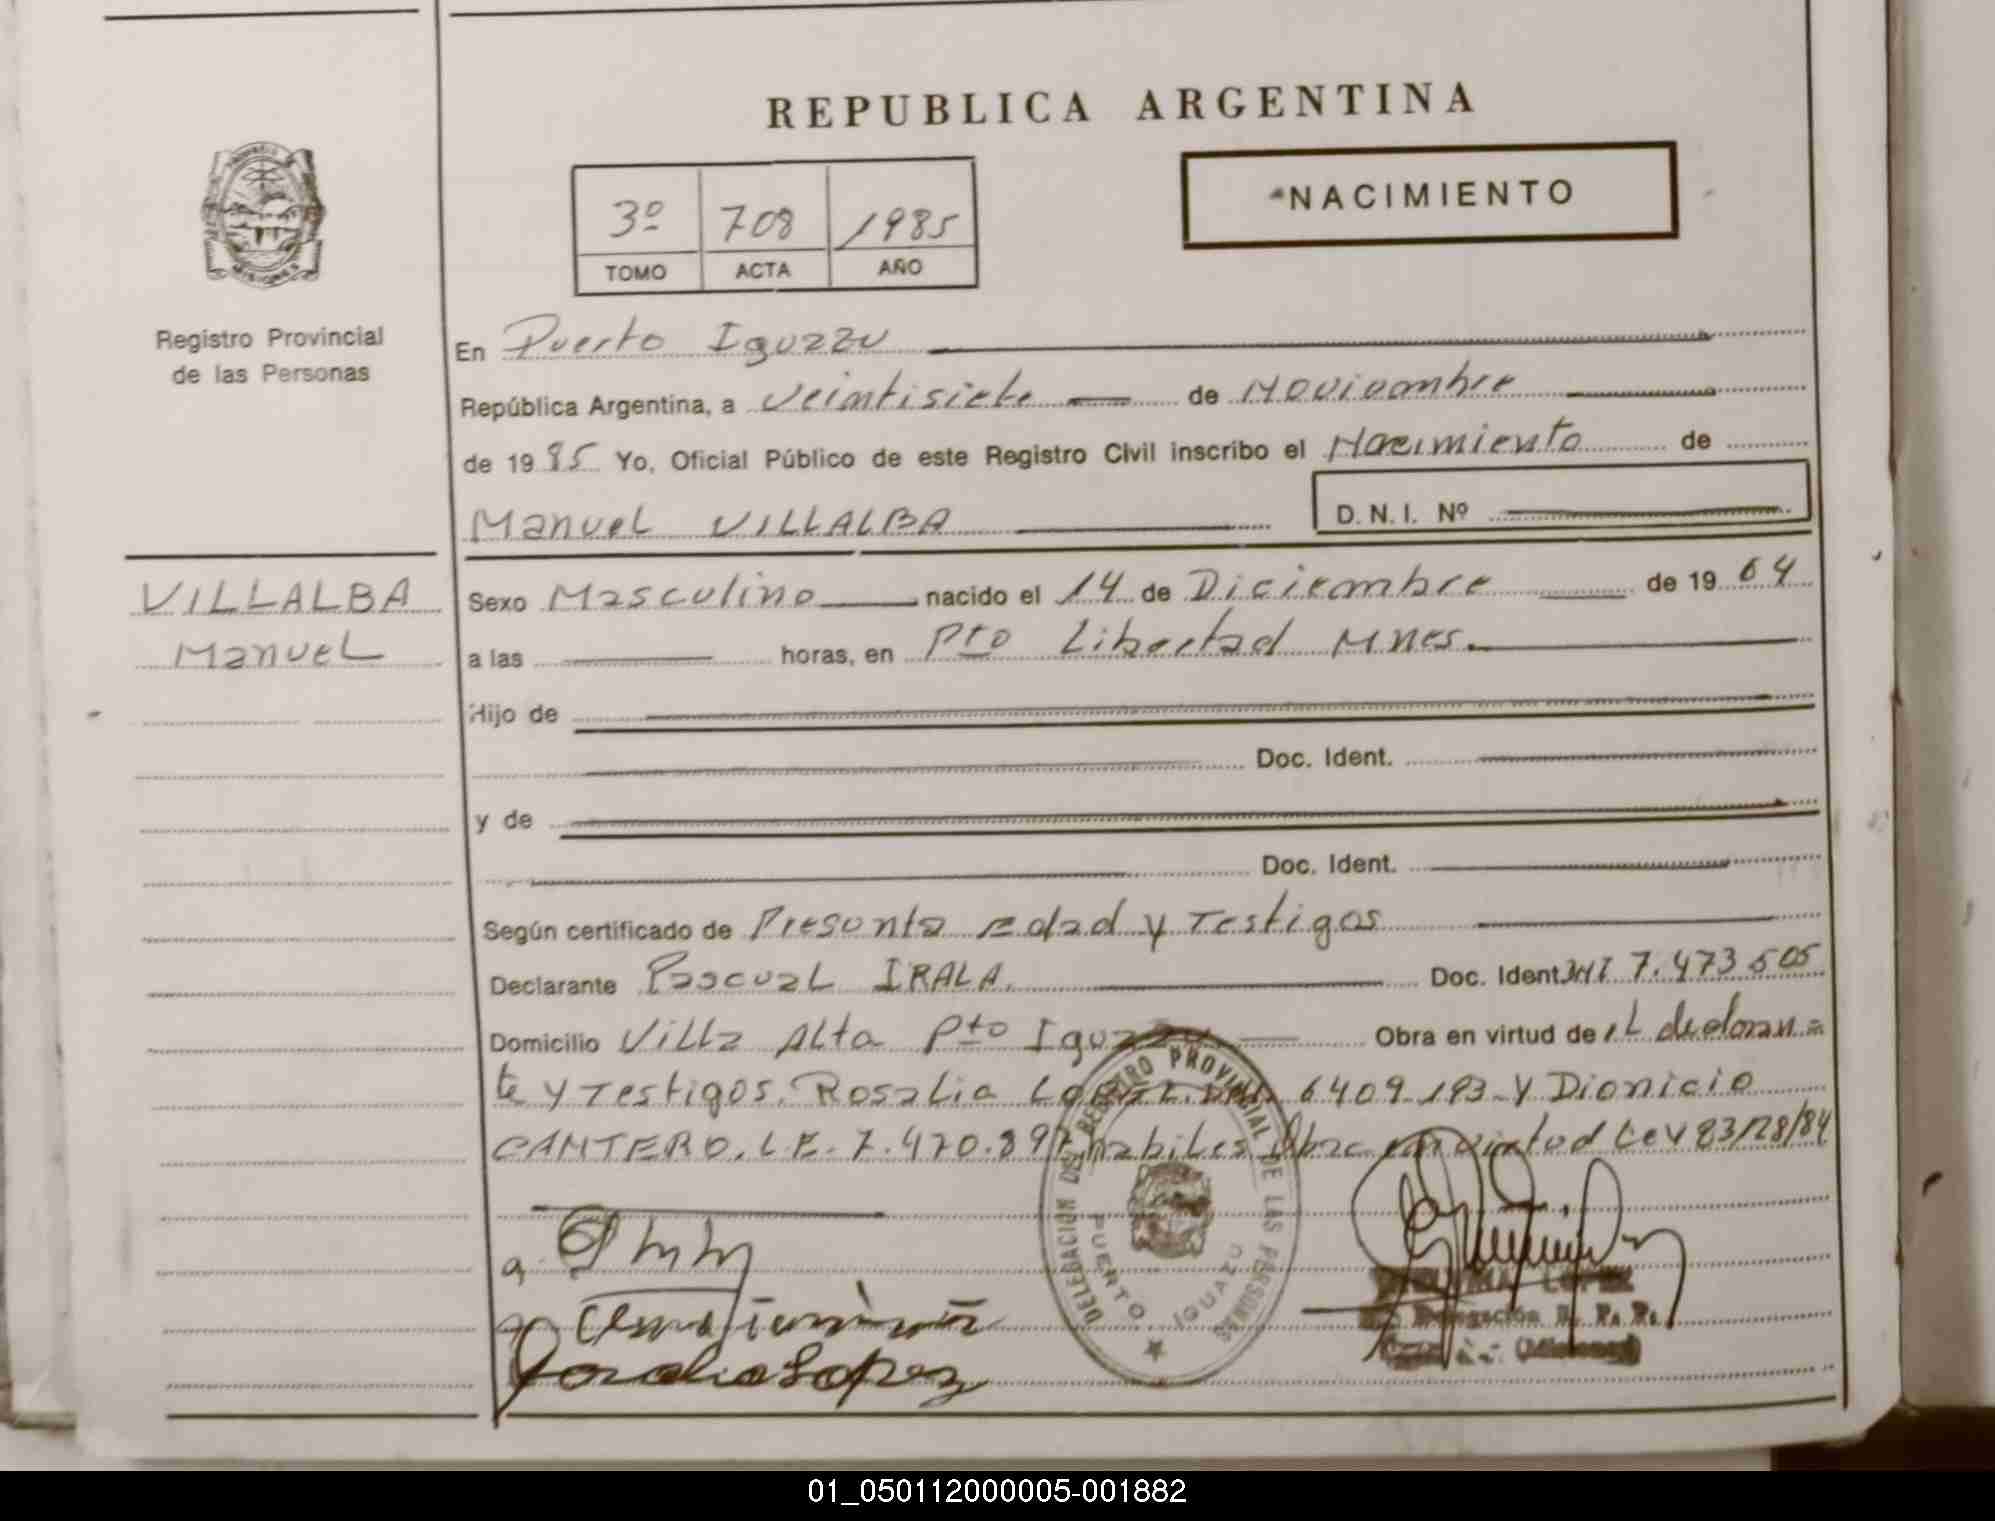 REPUBLICA ARGENTINA
NACIMIENTO
3º 708 1985
TOMO ACTA AÑO
Registro Provincial
de las Personas
En Puerto Iguazu
República Argentina, a veintisiete de Noviembre
de 1985 Yo, Oficial Público de este Registro Civil inscribo el Nacimiento de
Manuel VILLALBA D. N. I. Nº
VILLALBA
Manuel
Sexo Masculino nacido el 14 de Diciembre de 1964
a las horas, en Pto Libertad Mnes.
Hijo de
Doc. Ident.
y de
Doc. Ident.
Según certificado de Presunta Edad y Testigos
Declarante Pascual IRALA. Doc. Ident. 7.473.505
Domicilio Villa Alta Pto Iguazu Obra en virtud de
te y Testigos. Rosalia 6409.193 y Dionicio
CANTERO. L.E. 7.470.897 habiles Obra en virtud Ley 23/28/84
DELEGACION DEL REGISTRO PROVINCIAL DE LAS PERSONAS
PUERTO IGUAZU
Rosalia Lopez
LOPEZ
Delegación R. P. P.
(Misiones)
01_050112000005-001882